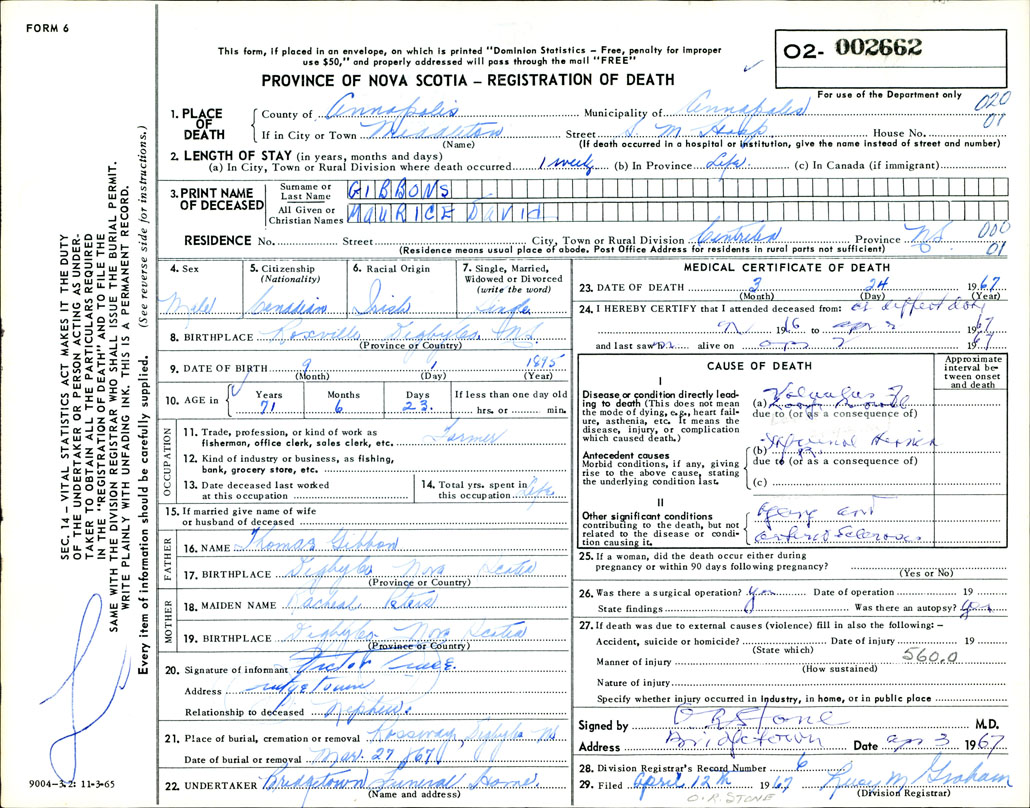 FORM 6
This form, if placed in an envelope, on which is printed "Dominion Statistics – Free, penalty for improper
use $50," and properly addressed will pass through the mail "FREE"
PROVINCE OF NOVA SCOTIA – REGISTRATION OF DEATH
O2- 002662
For use of the Department only
020
01
1. PLACE OF DEATH
County of Annapolis Municipality of Annapolis
If in City or Town Middleton Street S. M. Hosp House No.
(Name) (If death occurred in a hospital or institution, give the name instead of street and number)
2. LENGTH OF STAY (in years, months and days)
(a) In City, Town or Rural Division where death occurred 1 week (b) In Province Life (c) In Canada (if immigrant)
3. PRINT NAME OF DECEASED
Surname or Last Name GIBBONS
All Given or Christian Names MAURICE David
RESIDENCE No. Street City, Town or Rural Division Centrelea Province NS 000
01
(Residence means usual place of abode. Post Office Address for residents in rural parts not sufficient)
4. Sex
Male
5. Citizenship (Nationality)
Canadian
6. Racial Origin
Irish
7. Single, Married, Widowed or Divorced (write the word)
Single
8. BIRTHPLACE Digby Co, N.S.
(Province or Country)
9. DATE OF BIRTH 9 1 1895
(Month) (Day) (Year)
10. AGE in Years Months Days If less than one day old
71 6 23. hrs. or min.
OCCUPATION
11. Trade, profession, or kind of work as fisherman, office clerk, sales clerk, etc. Farmer
12. Kind of industry or business, as fishing, bank, grocery store, etc.
13. Date deceased last worked at this occupation
14. Total yrs. spent in this occupation Life
15. If married give name of wife or husband of deceased
FATHER
16. NAME Thomas Gibbon
17. BIRTHPLACE Digby Co Nova Scotia
(Province or Country)
MOTHER
18. MAIDEN NAME Racheal Peters
19. BIRTHPLACE Digby Co Nova Scotia
(Province or Country)
20. Signature of informant Victor
Address
Relationship to deceased Nephew.
21. Place of burial, cremation or removal Rossway, Digby Co NS
Date of burial or removal Mar. 27 /67
22. UNDERTAKER Bridgetown Funeral Home.
(Name and address)
MEDICAL CERTIFICATE OF DEATH
23. DATE OF DEATH 3 24 1967
(Month) (Day) (Year)
24. I HEREBY CERTIFY that I attended deceased from:
1916 to 1967
and last saw alive on 1967
CAUSE OF DEATH
Approximate interval between onset and death
I
Disease or condition directly leading to death (This does not mean the mode of dying, e.g., heart failure, asthenia, etc. It means the disease, injury, or complication which caused death.)
(a) Volvulus of
due to (or as a consequence of)
Antecedent causes
Morbid conditions, if any, giving rise to the above cause, stating the underlying condition last.
(b) Hernia
due to (or as a consequence of)
(c)
II
Other significant conditions contributing to the death, but not related to the disease or condition causing it.
25. If a woman, did the death occur either during pregnancy or within 90 days following pregnancy?
(Yes or No)
26. Was there a surgical operation? yes Date of operation 19
State findings Was there an autopsy? yes
27. If death was due to external causes (violence) fill in also the following: –
Accident, suicide or homicide? Date of injury 19
(State which)
560.0
Manner of injury
(How sustained)
Nature of injury
Specify whether injury occurred in Industry, in home, or in public place
Signed by O R Stone M.D.
Address Bridgetown Date apr 3 1967
28. Division Registrar's Record Number 6
29. Filed April 12th 1967 Lucy M Graham
(Division Registrar)
O.R. STONE
SEC. 14 – VITAL STATISTICS ACT MAKES IT THE DUTY
OF THE UNDERTAKER OR PERSON ACTING AS UNDER-
TAKER TO OBTAIN ALL THE PARTICULARS REQUIRED
IN THE "REGISTRATION OF DEATH" AND TO FILE THE
SAME WITH THE DIVISION REGISTRAR WHO SHALL ISSUE THE BURIAL PERMIT.
WRITE PLAINLY WITH UNFADING INK. THIS IS A PERMANENT RECORD.
Every item of information should be carefully supplied. (See reverse side for instructions.)
9004-3.2: 11-3-65